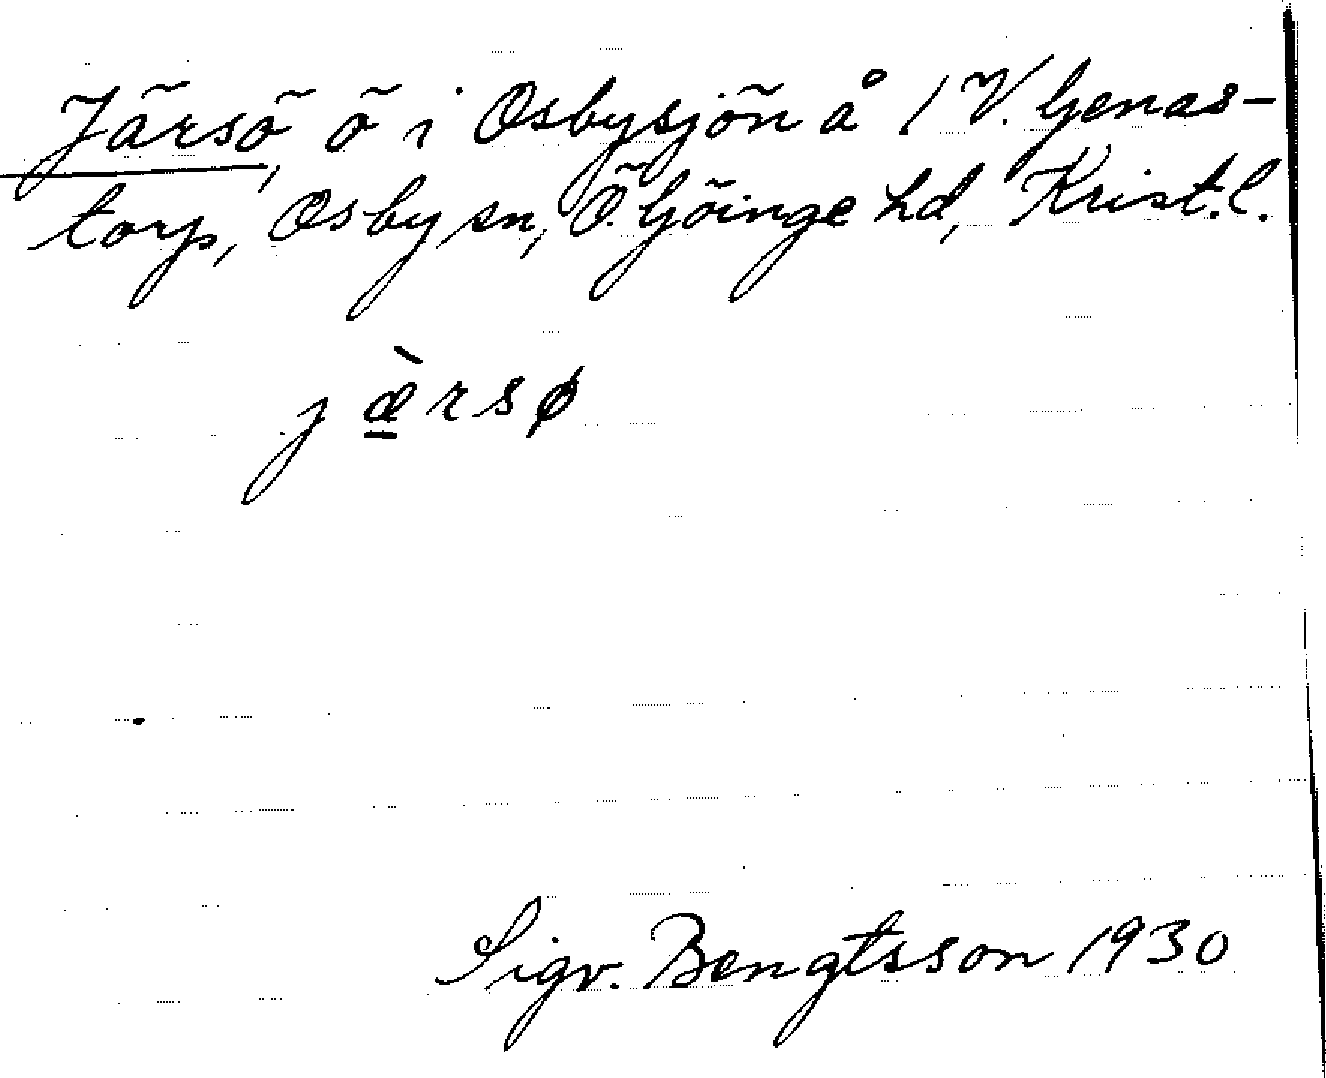 Järsö, ö i Osbysjön å 1 V. Genas-
torp, Osby sn, Ö. Göinge hd, Krist. l.
jæ̀rsø
Sigv. Bengtsson 1930